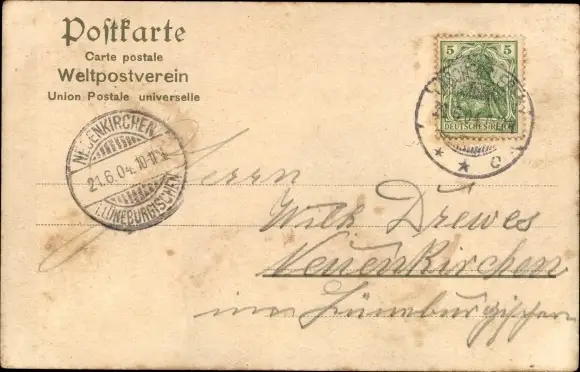 Postkarte
Carte postale
Weltpostverein
Union Postale universelle
5 5
DEUTSCHES REICH
* * c
NEUENKIRCHEN
21.6.04.10-11V.
I. LÜNEBURGISCHEN
Herrn
Wilh Drewes
Neuenkirchen
im Lüneburgischen